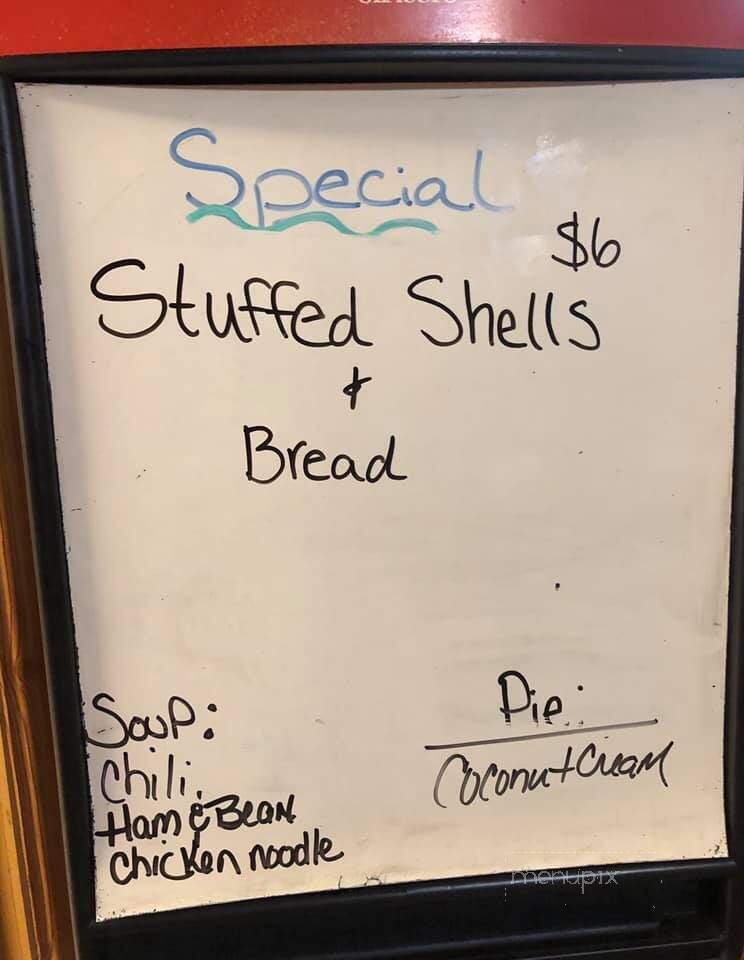 Special
$6
Stuffed Shells
&
Bread
Soup:
Chili,
Ham & Bean
Chicken noodle
Pie:
Coconut Cream
menupix